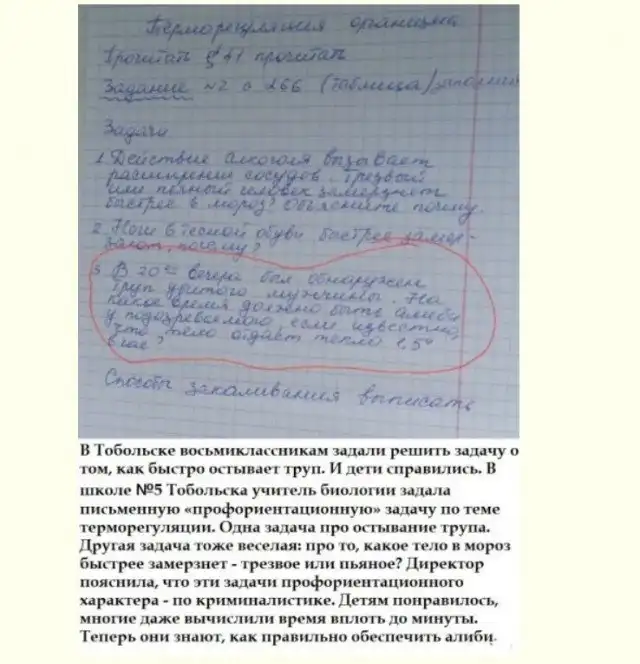 Терморегуляция организма
Прочитать § 47 прочитать
Задание №2 с 266 (Таблица) заполнить
Задачи
1. Действие алкоголя вызывает
расширение сосудов. Трезвый
или пьяный человек замерзнет
быстрее в мороз? Объясните почему.
2. Ноги в тесной обуви быстрее замер-
зают, почему?
3 В 20 00 вечера был обнаружен
труп убитого мужчины. На
какое время должно быть алиби
у подозреваемого, если известно,
что тело отдаёт тепло 1,5°
в час?
Способы закаливания выписать
В Тобольске восьмиклассникам задали решить задачу о
том, как быстро остывает труп. И дети справились. В
школе №5 Тобольска учитель биологии задала
письменную «профориентационную» задачу по теме
терморегуляции. Одна задача про остывание трупа.
Другая задача тоже веселая: про то, какое тело в мороз
быстрее замерзнет - трезвое или пьяное? Директор
пояснила, что эти задачи профориентационного
характера - по криминалистике. Детям понравилось,
многие даже вычислили время вплоть до минуты.
Теперь они знают, как правильно обеспечить алиби.